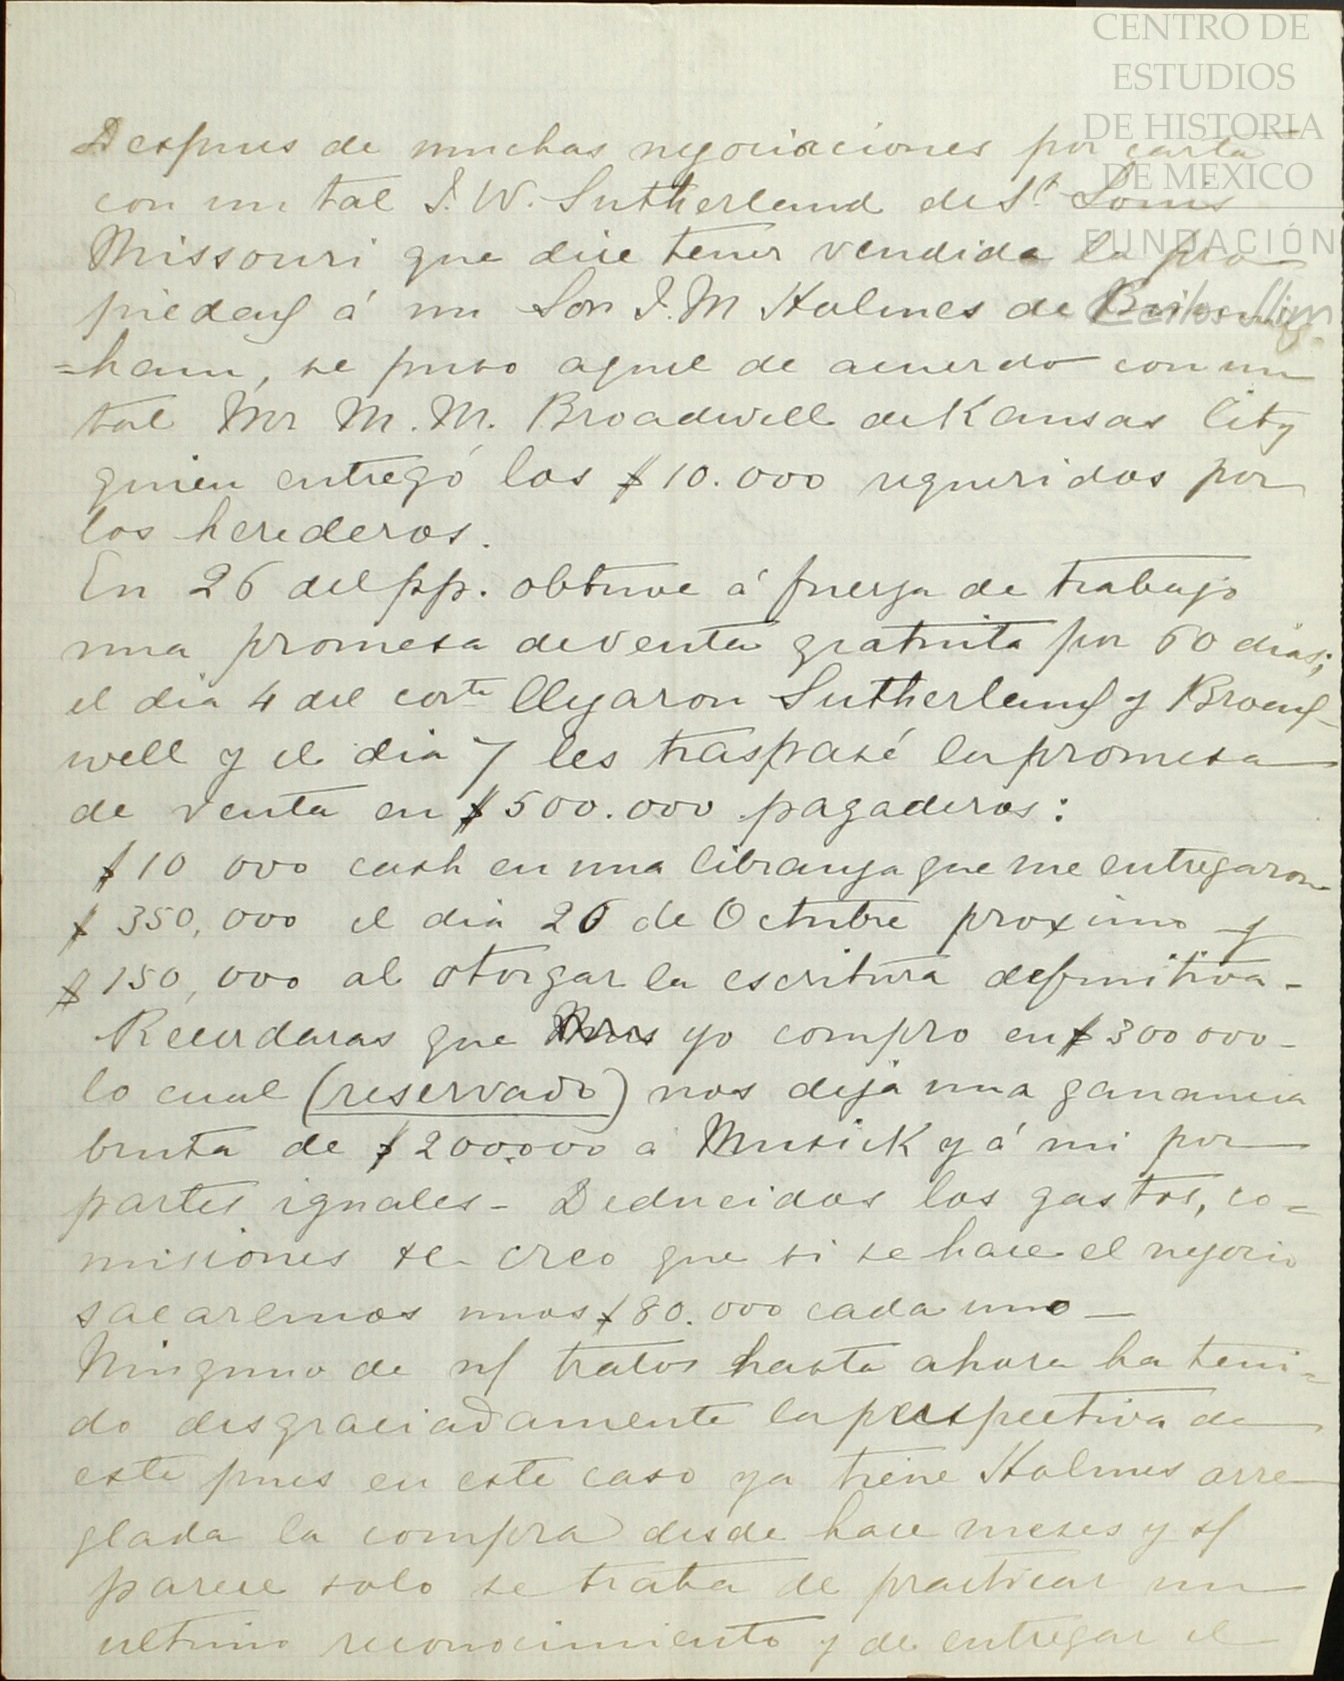 CENTRO DE
ESTUDIOS
DE HISTORIA
DE MÉXICO
FUNDACIÓN
Carlos Slim
Despues de muchas negociaciones por carta
con un tal J. W. Sutherland de St. Louis
Missouri que dice tener vendida la pro
piedad á un Sor J. M Holmes de Birming
=ham, se puso aquel de acuerdo con un
tal Mr M. M. Broadwell de Kansas City
quien entregó los $10.000 requeridos por
los herederos.
En 26 del pp. obtuve á fuerza de trabajo
una promesa de venta gratuita por 60 dias;
el dia 4 del corte llegaron Sutherland y Broad-
well y el dia 7 les traspasé la promesa
de venta en $500.000 pagaderos:
$10 000 cash en una libranza que me entregaron
$350,000 el dia 26 de Octubre proximo y
$150,000 al otorgar la escritura definitiva -
Recordaras que yo compro en $300 000 -
lo cual (reservado) nos deja una ganancia
bruta de $200.000 a Musick y á mi por
partes iguales - Deducidos los gastos, co=
misiones &c creo que si se hace el negocio
sacaremos unos $80.000 cada uno -
Ninguno de n/ tratos hasta ahora ha teni-
do desgraciadamente la perspectiva de
este pues en este caso ya tiene Holmes arre
glada la compra desde hace meses y s/
parece solo se trata de practicar un
ultimo reconocimiento y de entregar el